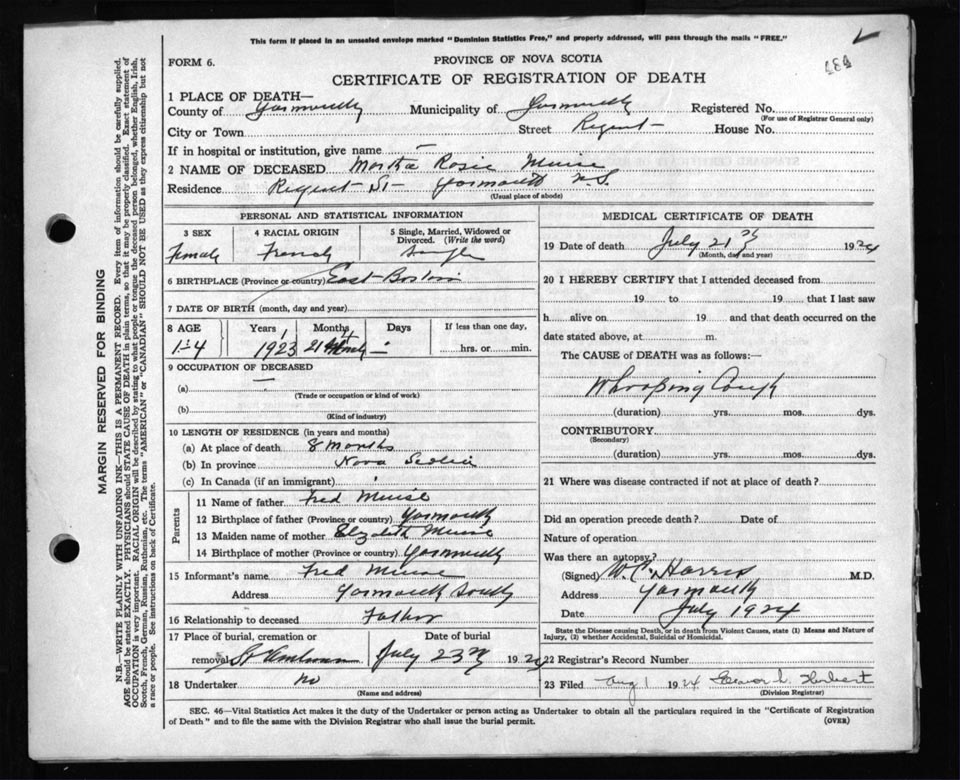 This form if placed in an unsealed envelope marked "Dominion Statistics Free," and properly addressed, will pass through the mails "FREE."
FORM 6.
PROVINCE OF NOVA SCOTIA
CERTIFICATE OF REGISTRATION OF DEATH
1 PLACE OF DEATH—
County of Yarmouth Municipality of Yarmouth Registered No.
(For use of Registrar General only)
City or Town Street Regent House No.
If in hospital or institution, give name —
2 NAME OF DECEASED Martha Rosie Muise
Residence Regent St Yarmouth N.S.
(Usual place of abode)
PERSONAL AND STATISTICAL INFORMATION
3 SEX 4 RACIAL ORIGIN 5 Single, Married, Widowed or Divorced. (Write the word)
Female French Single
6 BIRTHPLACE (Province or country) East Boston
7 DATE OF BIRTH (month, day and year)
8 AGE Years Months Days If less than one day,
1923 21 — hrs. or min.
9 OCCUPATION OF DECEASED
(a) —
(Trade or occupation or kind of work)
(b)
(Kind of industry)
10 LENGTH OF RESIDENCE (in years and months)
(a) At place of death 8 months
(b) In province Nova Scotia
(c) In Canada (if an immigrant)
Parents
11 Name of father Fred Muise
12 Birthplace of father (Province or country) Yarmouth
13 Maiden name of mother Elizabeth Muise
14 Birthplace of mother (Province or country) Yarmouth
15 Informant's name Fred Muise
Address Yarmouth South
16 Relationship to deceased Father
17 Place of burial, cremation or removal Date of burial
July 23rd 1924
18 Undertaker no
(Name and address)
MEDICAL CERTIFICATE OF DEATH
19 Date of death July 21 1924
(Month, day and year)
20 I HEREBY CERTIFY that I attended deceased from
19 to 19 that I last saw
h alive on 19 and that death occurred on the
date stated above, at m.
The CAUSE of DEATH was as follows:
Whooping Cough
(duration) yrs. mos. dys.
CONTRIBUTORY
(Secondary)
(duration) yrs. mos. dys.
21 Where was disease contracted if not at place of death?
Did an operation precede death? Date of
Nature of operation
Was there an autopsy?
(Signed) W. C. Harris M.D.
Address Yarmouth
Date July 1924
State the Disease causing Death, or in death from Violent Causes, state (1) Means and Nature of
Injury, (2) whether Accidental, Suicidal or Homicidal.
22 Registrar's Record Number
23 Filed Aug 1 1924 Herbert
(Division Registrar)
SEC. 46—Vital Statistics Act makes it the duty of the Undertaker or person acting as Undertaker to obtain all the particulars required in the "Certificate of Registration
of Death" and to file the same with the Division Registrar who shall issue the burial permit.
(OVER)
MARGIN RESERVED FOR BINDING
N.B.—WRITE PLAINLY WITH UNFADING INK—THIS IS A PERMANENT RECORD. Every item of information should be carefully supplied.
AGE should be stated EXACTLY. PHYSICIANS should STATE CAUSE OF DEATH in plain terms, so that it may be properly classified. Exact statement of
OCCUPATION is very important. RACIAL ORIGIN will be described by stating to what people or tongue the deceased person belonged, whether English, Irish,
Scotch, French, German, Russian, Ruthenian, etc. The terms "AMERICAN" or "CANADIAN" SHOULD NOT BE USED as they express citizenship but not
a race or people. See instructions on back of Certificate.